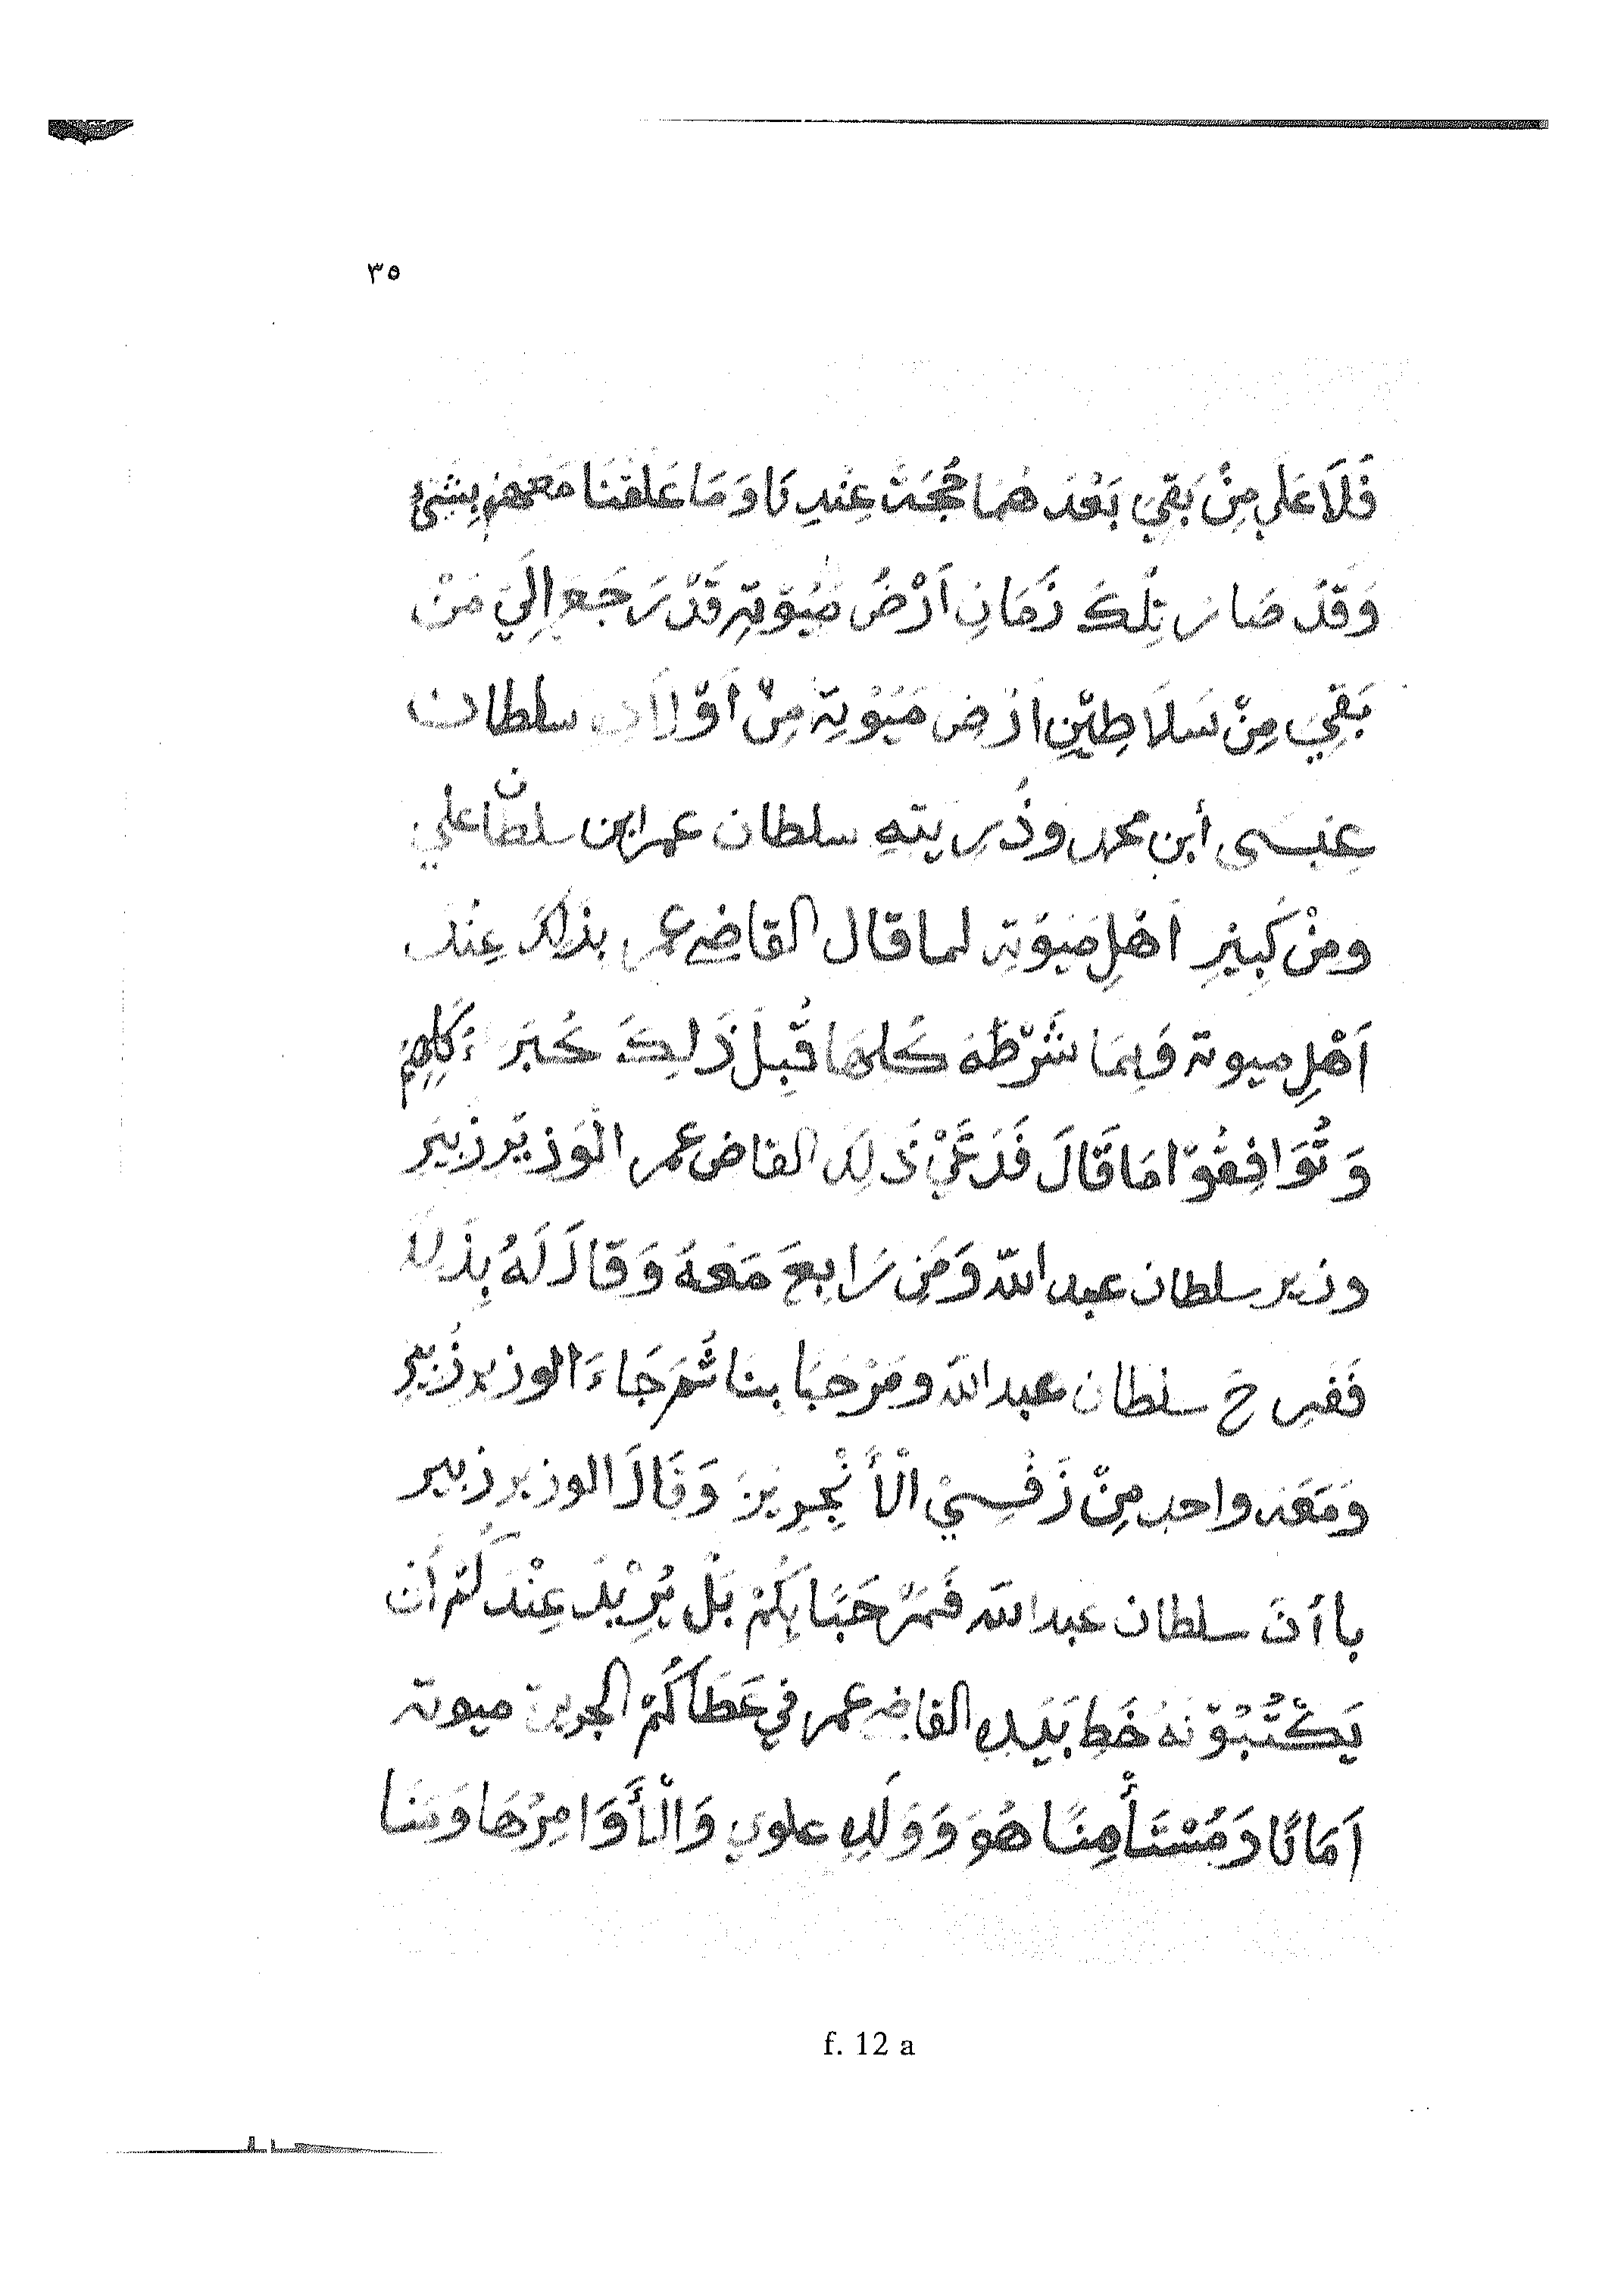 ٣٥
فَلَا عَلَي مِنْ بَقِيَ بَعْدَ هُمَا حُجَةٌ عِنْدِ نَا وَمَا عَلَقْنَا مَعَهُمْ بِشَئٍ
وَقَدْ صَارَ تِلْكَ زَمَانِ اَرْضُ مَيُوْتِهِ قَدْ رَجَعَ اِلَيَ مَنْ
بَقِيَ مِنْ سَلَاطِيْنِ اَرْضِ مَيُوْتِهَ مِنْ اَوْلَادِ سلطان
عِيْسَى أبن محمد وذُرِيتِهِ سلطان عمر ابن سلطان علي
ومِنْ كَبِيْرِ اَهْلِ مَيُوْتِه لما قال القاضي عمر بذلِكَ عِنْدَ
اَهْلِ ميوته فَبِمَا شَرْطَهُ كُلهَا قُبِلَ ذَلِكَ كُبَرَءَ كُلِهِمْ
وَتُوَافِقُوْا مَا قَالَ فَدَعَيْ ذَلِكَ القاض عمر الْوَزِيْر زُبَيْر
وزير سلطان عبد الله وَمَنِ رَابِعَ مَعَهُ وَقَالَ لَهُ بِذَلِكَ
فَفَرِحَ سلطان عبد الله ومَرْحَبَا بنا ثُمَ جَاءَ الوزير زُبَيْر
وَمَعَهُ واحد مِنْ زَفْسِيْ الْأَنْجِرِيْزَ وَقَالَ الوزير زبير
باأنَ سلطان عبد الله فَمَرْحَبًا بِكُمْ بَلْ يُرِيْدُ عِنْدَكُمْ أَنْ
يَكْتُبُوْنَهُ خَطِ بَيَدِ القاضي عمر في عَطَاكُمْ الجزيرة ميوته
اَمَانًا وَمُسْتَأْمِنًا هُوَ وَوَلَدِ علوي وَالْأَوَامِرُهَا وَمَنَا
f. 12 a